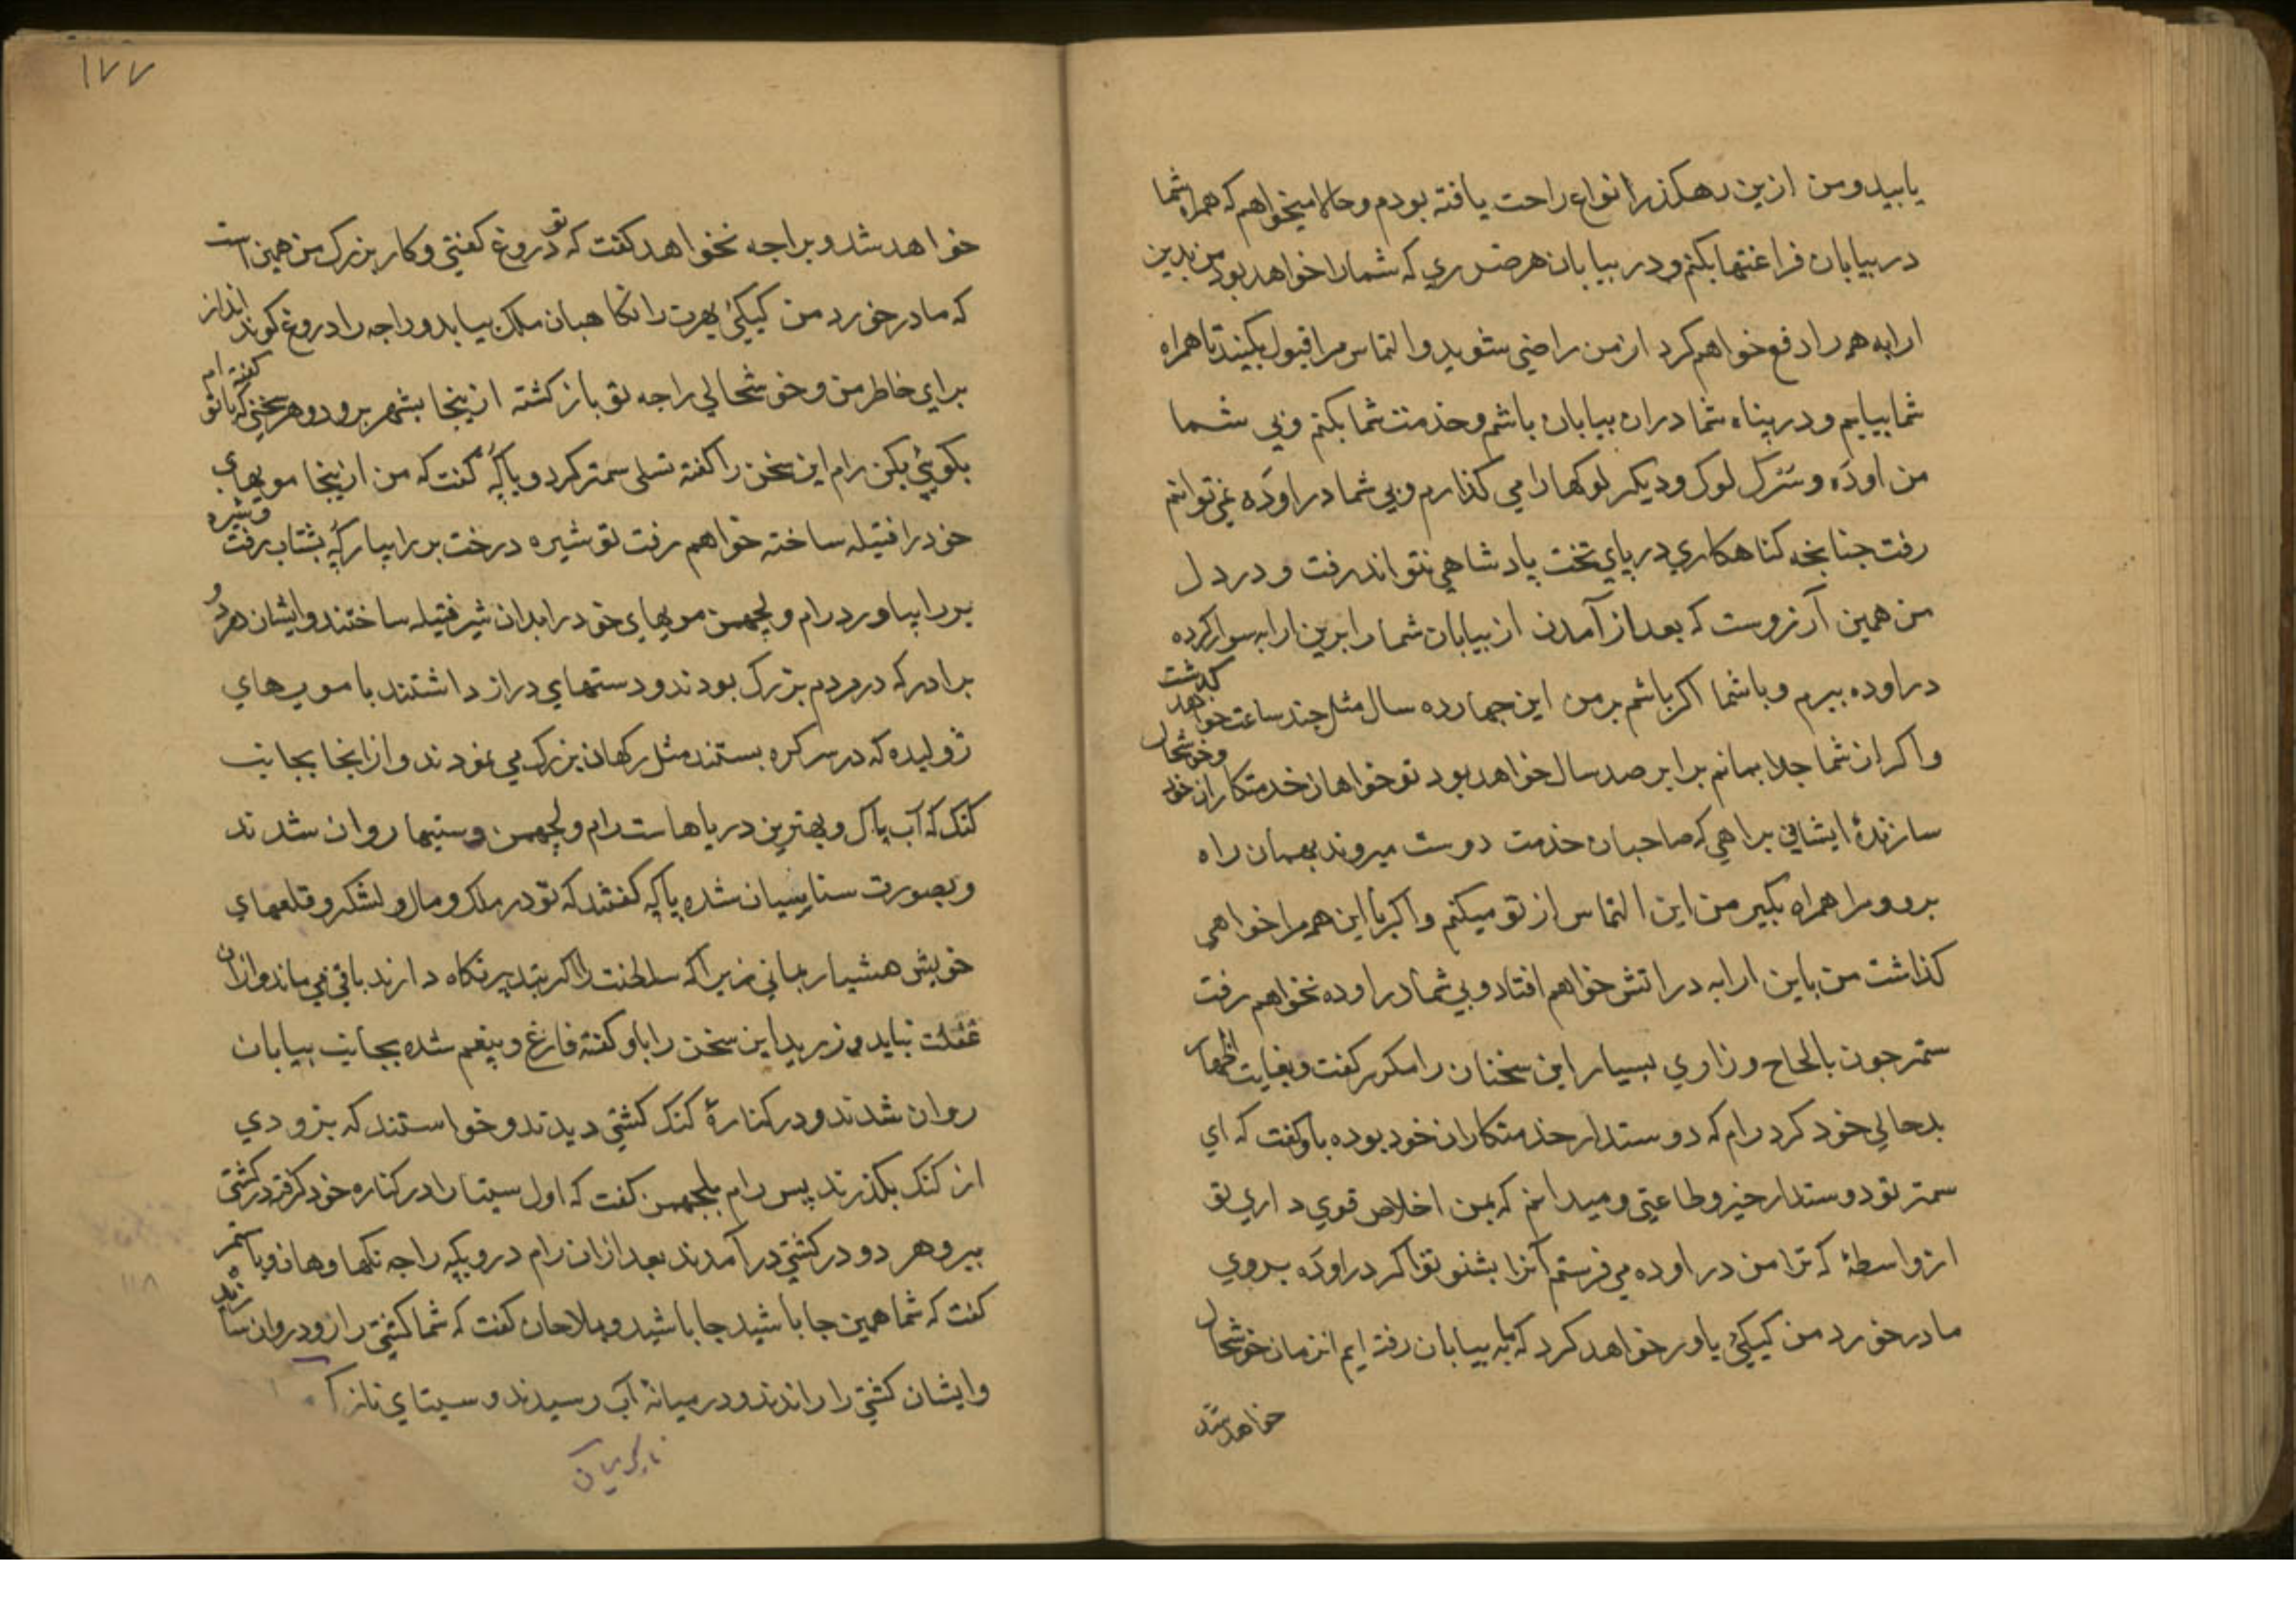 یابید و من ازین رهکذر انواع راحت یافته بودم و حالا میخواهم که همراه شما
در بیابان فراغتها بکنم و در بیابان هر ضرری که شما را خواهد بود من بدین
ارابه همه را دفع خواهم کرد از من راضی شوید و التماس مرا قبول بکنید تا همراه
شما بیایم و در پناه شما دران بیابان باشم و خدمت شما بکنم و بی شما
من اوده و سرک لوک و دیکر لوکها را می کذارم و بی شما در اوده نمی توانم
رفت جنانجه کناهکاری در پای تخت پادشاهی نتواند رفت و در دل
من همین آرزوست که بعد از آمدن از بیابان شما را برین ارابه سوار کرده
در اوده ببرم و با شما اکر باشم بر من این جهارده سال مثل جند ساعت خواهد کذشت
و اکر از شما جدا بمانم برابر صد سال خواهد بود تو خواهان خدمتکاران خود و خوشحال
سازندهٔ ایشانی براهی که صاحبان خدمت دوست میروند بهمان راه
برو و مرا همراه بکیر من این التماس از تو میکنم و اکر با این همه مرا خواهی
کذاشت من باین ارابه در آتش خواهم افتاد و بی شما در اوده نخواهم رفت
سمتر جون بالحاح و زاری بسیار این سخنان را مکرر کفت و بغایت اظهار
بدحالی خود کرد رام که دوستدار خدمتکاران خود بوده باو کفت که ای
سمتر تو دوستدار خیر و طاعتی و میدانم که بمن اخلاص قوی داری تو
از واسطهٔ که ترا من در اوده می فرستم آنرا بشنو تو اکر در اوده بروی
مادر خورد من کیکئی باور خواهد کرد که ما به بیابان رفته ایم انزمان خوشحال
خواهد شد
۱۷۷
خواهد شد و براجه نخواهد کفت که تو دروغ کفتی و کار بزرک من همین است
که مادر خورد من کیکئی بهرت را نکاهبان ملک بیابد و راجه را دروغ کو نداند از
برای خاطر من و خوشحالی راجه تو باز کشته ازینجا بشهر برو و هر سخنی که با تو کفته ام
بکوئی بکن رام این سخن را کفته تسلی سمتر کرد و با کُه کفت که من ازینجا مویهای
خود را فتیله ساخته خواهم رفت تو شیره درخت بر را بیار کُه بشتاب رفت و شیره
بر را بیاورد رام و لچهمن مویهای خود را بدان شیر فتیله ساختند و ایشان هر دو
برادر که در مردم بزرک بودند و دستهای دراز داشتند با موی های
ژولیده که در سر کره بستند مثل رکهان بزرک می نمودند و ازانجا بجانب
کنک که آب پاک و بهترین دریاهاست رام و لچهمن و سیتا روان شدند
و بصورت سناسیان شده با کُه کفتند که تو در ملک و مال و لشکر و قلعهای
خویش هشیار بمانی زیرا که سلطنت را اکر بتدبیر نکاه دارند باقی می ماند و ازان
غفلت نباید ورزید این سخن را باو کفته فارغ و بیغم شده بجانب بیابان
روان شدند و در کنارهٔ کنک کشتی دیدند و خواستند که بزودی
از کنک بکذرند پس رام بلچهمن کفت که اول سیتا را در کناره خود کرفته در کشتی
ببر و هر دو در کشتی در آمدند بعد ازان رام در و بکه راجه نکهاوهان و با سمتر
کفت که شما همین جا باشید جا باشید و بملاحان کفت که شما کشتی را زود روان سازید
و ایشان کشتی را راندند و در میانهٔ آب رسیدند و سیتای نازک
۱۱۸